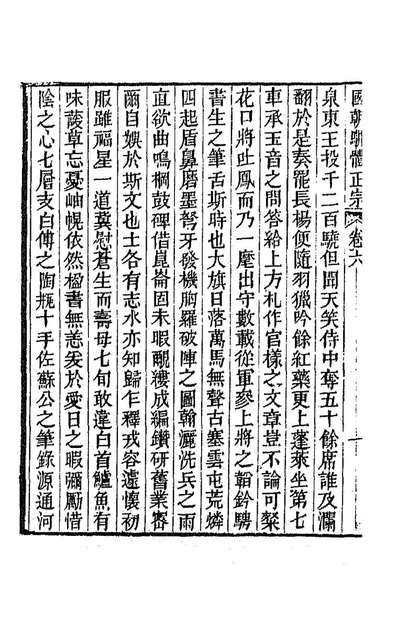 國朝駢體正宗 卷六
泉東王投千二百驍但聞天笑侍中奪五十餘席誰及瀾
翻於是奏罷長楊便隨羽獵吟餘紅藥更上蓬萊坐第七
車承玉音之問答給上方札作官樣之文章豈不論可粲
花口將吐鳳而乃一麾出守數載從軍參上將之韜鈐騁
書生之筆舌斯時也大旗日落萬馬無聲古塞雲屯荒燐
四起盾鼻磨墨弩牙發機胸羅破陣之圖翰灑洗兵之雨
直欲曲鳴㭎鼓碑借崑崙固未暇覼縷成編鑽研舊業嚌
爾自娛於斯文也土各有志水亦知歸乍釋戎容遽懷初
服雖福星一道冀慰蒼生而壽母七旬敢違白首鱸魚有
味蘐草忘憂岫幌依然楹書無恙爰於愛日之暇彌勵惜
陰之心七層支白傅之陶瓶十手佐蘇公之筆錄源通河